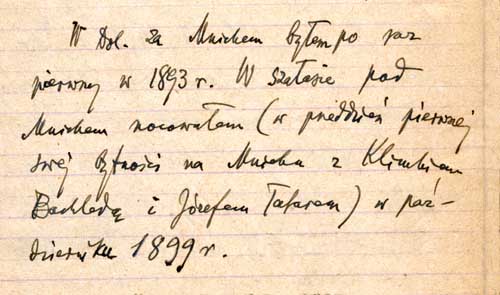 W Dol. za Mnichem byłem po raz
pierwszy w 1893 r. W szałasie pod
Mnichem nocowałem (w przeddzień pierwszej
swej bytności na Mnichu z Klimkiem
Bachledą i Józefem Tatarem) w paź-
dzierniku 1899 r.